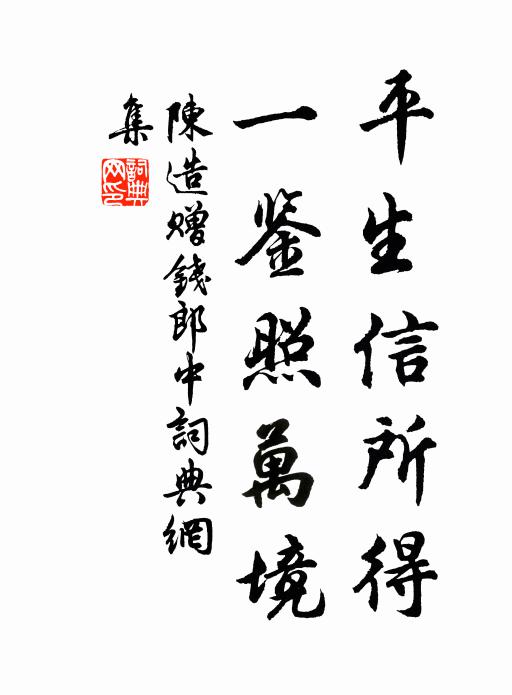 平生信所得
一鉴照萬境
陳造贈錢郎中詞典網
集
詞典网印